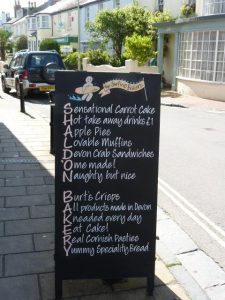 Sensational Carrot Cake
Hot take away drinks £1
Apple Pies
Lovable Muffins
Devon Crab Sandwiches
Ome made!
Naughty but nice
Burt's Crisps
All products made in Devon
Kneaded every day
at Cake!
Real Cornish Pasties
Yummy Speciality Bread